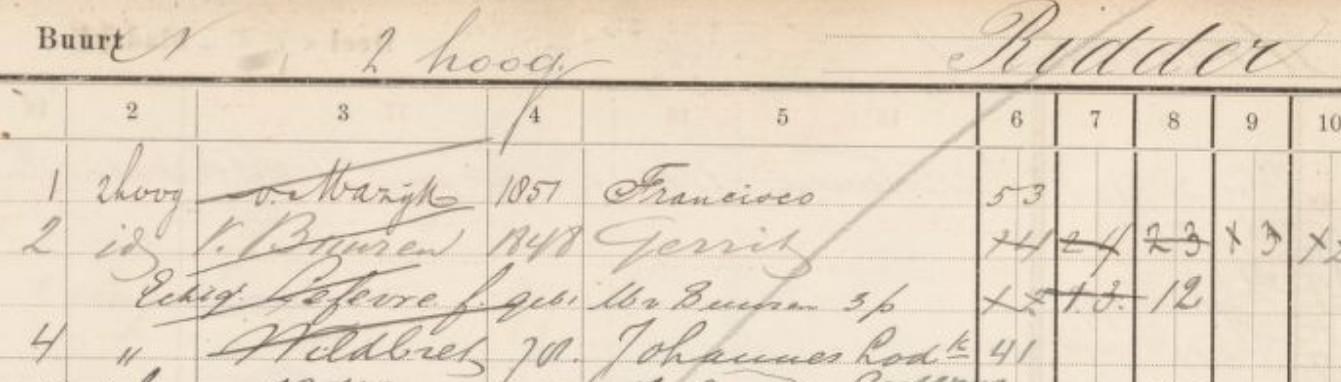 Buurt N 2 hoog Ridder
2 3 4 5 6 7 8 9 10
1 2hoog v. Marijk 1851 Francisco 53
2 id V. Buuren 1848 Gerrit 24 23
Echtg. Lefevre f. geb. v Buuren 3 p 13. 12
4 " Wildbret 70. Johannes Lod k 41